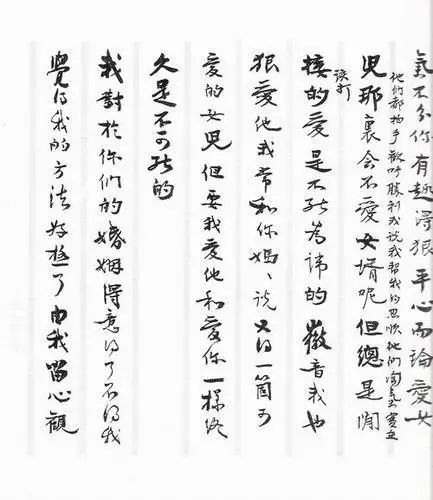 氣不分你有趣得狠平心而論愛女
他們都拍手歡呼勝利我說我幫我的思順他們淘氣實在
該打
兒那裏會不愛女壻呢但總是間
接的愛是不能為諱的徽音我也
狠愛他我常和你媽〻說又得一箇可
愛的女兒但要我愛他和愛你一樣終
久是不可能的
我對於你們的婚姻得意得了不得我
覺得我的方法好極了由我留心觀